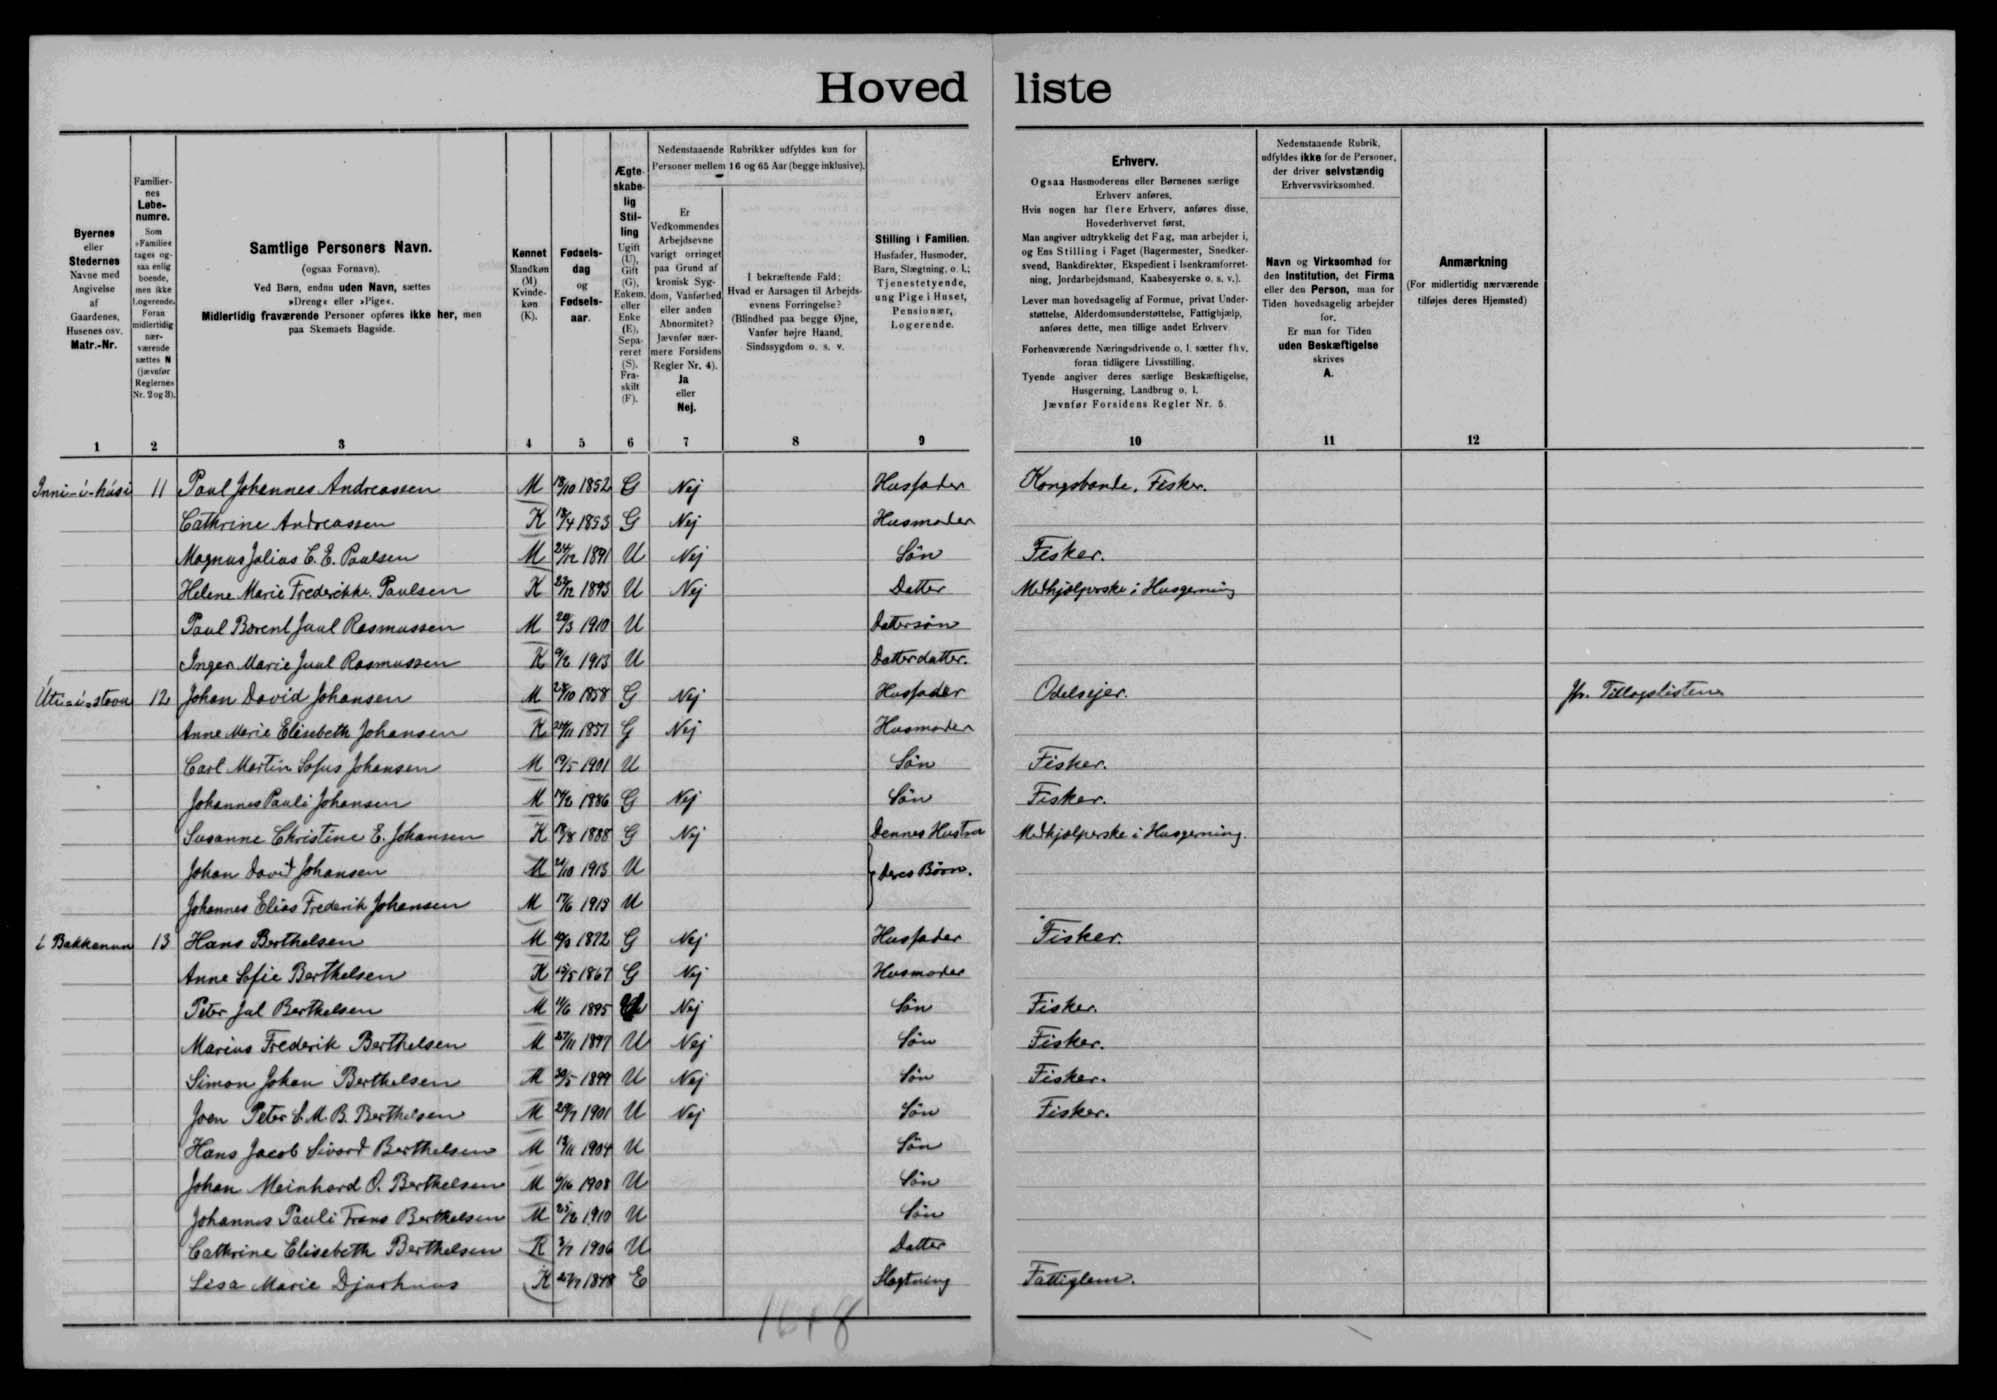 Hoved liste
Byernes
eller
Stedernes
Navne med
Angivelse
af
Gaardenes,
Husenes osv.
Matr.-Nr.
Familier-
nes
Løbe-
numre.
Som
»Familie«
tages og-
saa enlig
boende,
men ikke
Logerende.
Foran
midlertidig
nær-
værende
sættes N
(jævnfør
Reglernes
Nr. 2 og 3).
Samtlige Personers Navn.
(ogsaa Fornavn).
Ved Børn, endnu uden Navn, sættes
»Dreng« eller »Pige«.
Midlertidig fraværende Personer opføres ikke her, men
paa Skemaets Bagside.
Kønnet
Mandkøn
(M)
Kvinde-
køn
(K).
Fødsels-
dag
og
Fødsels-
aar.
Ægte-
skabe-
lig
Stil-
ling
Ugift
(U),
Gift
(G),
Enkem.
eller
Enke
(E),
Sepa-
reret
(S).
Fra-
skilt
(F).
Nedenstaaende Rubrikker udfyldes kun for
Personer mellem 16 og 65 Aar (begge inklusive).
Er
Vedkommendes
Arbejdsevne
varigt orringet
paa Grund af
kronisk Syg-
dom, Vanførhed
eller anden
Abnormitet?
Jævnfør nær-
mere Forsidens
Regler Nr. 4).
Ja
eller
Nej.
I bekræftende Fald:
Hvad er Aarsagen til Arbejds-
evnens Forringelse?
(Blindhed paa begge Øjne,
Vanfør højre Haand,
Sindssygdom o. s. v.
Stilling i Familien.
Husfader, Husmoder,
Barn, Slægtning, o. l.;
Tjenestetyende,
ung Pige i Huset,
Pensionær,
Logerende.
Erhverv.
Ogsaa Husmoderens eller Børnenes særlige
Erhverv anføres,
Hvis nogen har flere Erhverv, anføres disse,
Hovederhvervet først,
Man angiver udtrykkelig det Fag, man arbejder i,
og Ens Stilling i Faget (Bagermester, Snedker-
svend, Bankdirektør, Ekspedient i Isenkramforret-
ning, Jordarbejdsmand, Kaabesyerske o. s. v.).
Lever man hovedsagelig af Formue, privat Under-
støttelse, Alderdomsunderstøttelse, Fattighjælp,
anføres dette, men tillige andet Erhverv
Forhenværende Næringsdrivende o. l. sætter fhv.
foran tidligere Livsstilling.
Tyende angiver deres særlige Beskæftigelse,
Husgerning, Landbrug o. l.
Jævnfør Forsidens Regler Nr. 5.
Nedenstaaende Rubrik,
udfyldes ikke for de Personer,
der driver selvstændig
Erhvervsvirksomhed.
Navn og Virksomhed for
den Institution, det Firma
eller den Person, man for
Tiden hovedsagelig arbejder
for.
Er man for Tiden
uden Beskæftigelse
skrives
A.
Anmærkning
(For midlertidig nærværende
tilføjes deres Hjemsted)
1 2 3 4 5 6 7 8 9 10 11 12
Inni-i-húsi 11 Paul Johannes Andreassen M 1852 G Nej Husfader Kongsbonde, Fisker.
Cathrine Andreassen K 1853 G Nej Husmoder
Magnus Julius C. E. Paulsen M 24/12 1891 U Nej Søn Fisker.
Helene Marie Frederikke Paulsen K 1893 U Nej Datter Medhjælperske i Husgerning
Paul Berent Juul Rasmussen M 1910 U Dattersøn
Inger Marie Juul Rasmussen K 1913 U Datterdatter.
12 Johan David Johansen M 1858 G Nej Husfader Odelsejer. Jfr. Tillægslisten
Anne Marie Elisebeth Johansen K 1857 G Nej Husmoder
Carl Martin Sofus Johansen M 19/5 1901 U Søn Fisker.
Johannes Pauli Johansen M 1886 G Nej Søn Fisker.
Susanne Christine E. Johansen K 1888 G Nej Dennes Hustru Medhjælperske i Husgerning.
Johan David Johansen M 1913 U } Deres Børn.
Johannes Elias Frederik Johansen M U
13 Hans Berthelsen M 1872 G Nej Husfader Fisker.
Anne Sofie Berthelsen K 1867 G Nej Husmoder
Peter Jul Berthelsen M 1895 Nej Søn Fisker.
Marius Frederik Berthelsen M 27/11 1897 U Nej Søn Fisker.
Simon Johan Berthelsen M 1899 U Nej Søn Fisker.
Joen Peter S. M. B. Berthelsen M 1901 U Nej Søn Fisker.
Hans Jacob Sivard Berthelsen M 1904 U Søn
Johan Meinhard O. Berthelsen M 1908 U Søn
Johannes Pauli Frans Berthelsen M 1910 U Søn
Cathrine Elisebeth Berthelsen K 1906 U Datter
Lisa Marie Djurhuus K 1848 E Slægtning Fattiglem.
16+8